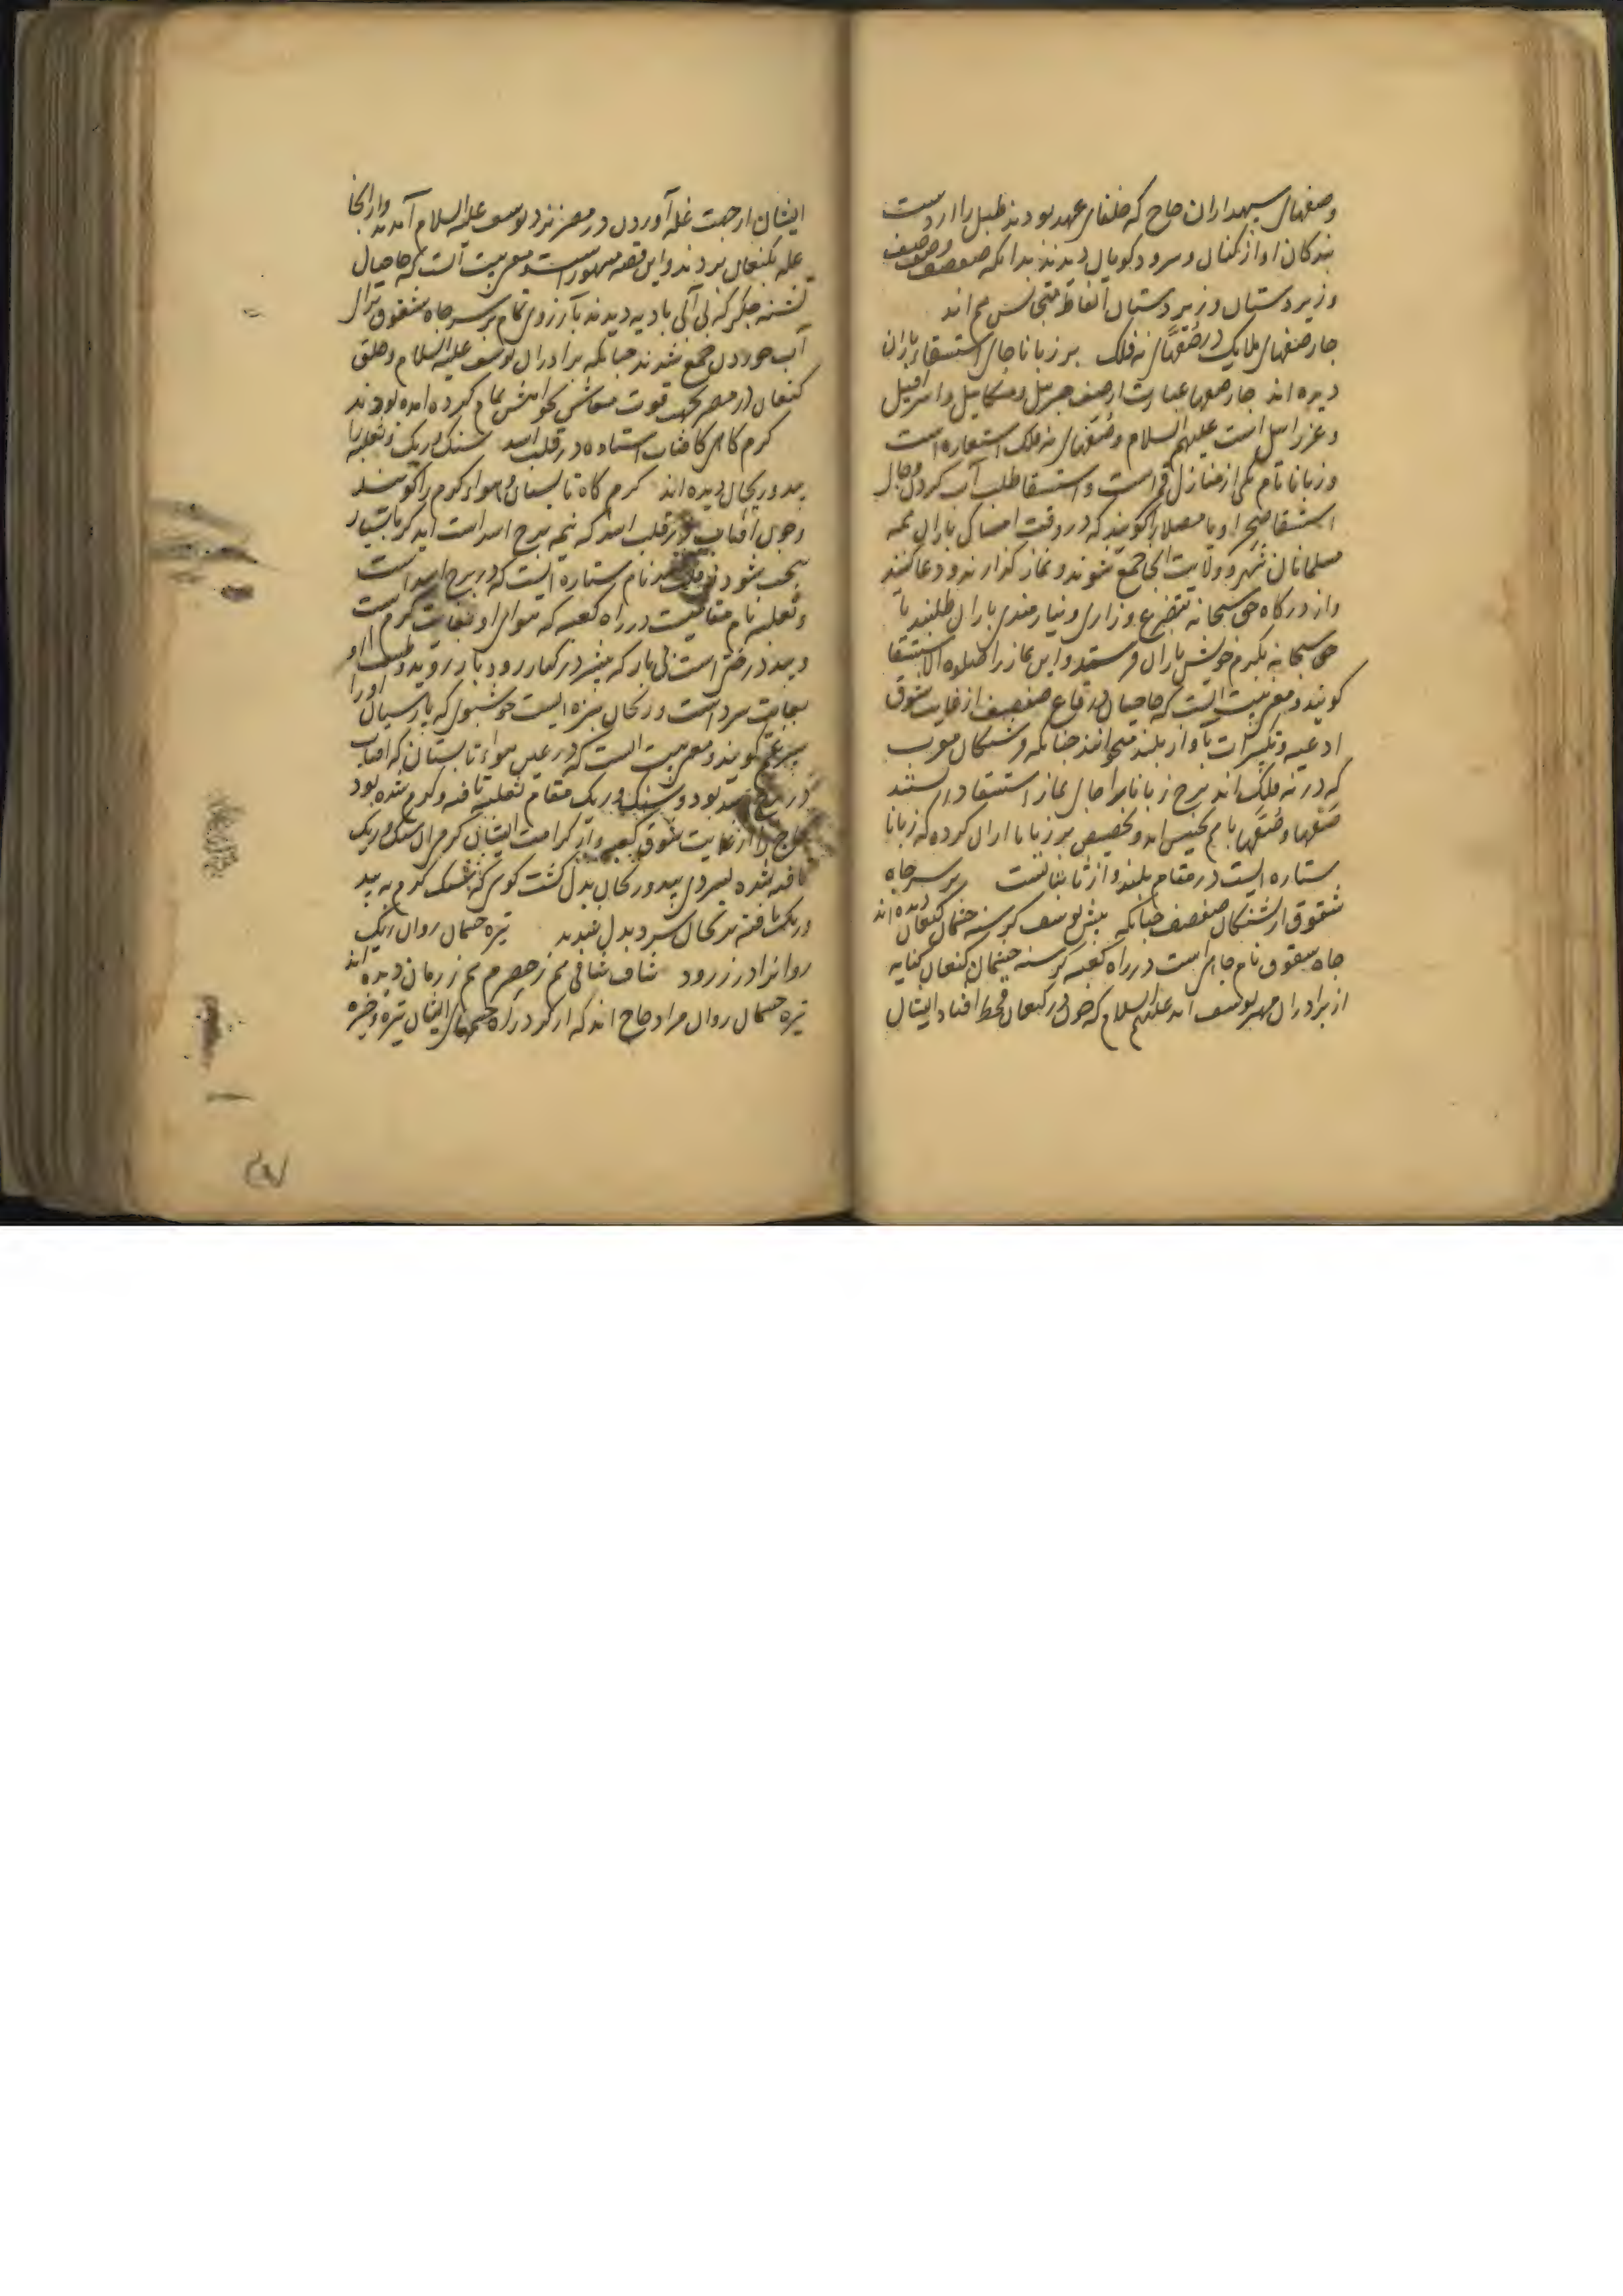 وصفهای سپهداران حاج که خلفای عهد بودند طبل را از دست
بندکان آواز کنان و سرود کویان دیدند بدانکه صفصف وصف صف
و زیر دستان و زیر دستان الفاظ متجانس هم اند
چار صفهای ملایک در صُفّهای نه فلک بر زبانا جای استسقاء باران
دیده اند چار صفها عبارت از صف جبریل و میکاییل و اسرافیل
و عزراییل است علیهم السلام و صُفّهای نه فلک استعاره است
و زبانا نام یکی از منازل قمر است و استسقا طلب آب کردن و جای
استسقا صحرا و یا مصلا را کویند که در وقت امساک باران همه
مسلمانان شهر و ولایت انجا جمع شوند و نماز کذارند و دعا کنند
و از درکاه حق سبحانه بتضرع و زاری و نیازمندی باران طلبند تا
حق سبحانه بکرم خویش باران فرستد و این نماز را صلوة الاستسقا
کویند و معنی بیت انست که حاجیان در قاع صفصف از غایت شوق
ادعیه و تکبیرات بآواز بلند میخوانند چنانکه فرشتکان صوب
که در نه فلک اند برج زبانا را جای نماز استسقا دانستند
صفّها و صُفّها با هم تجنیس اند و تخصیص بر زبانا ازان کرده که زبانا
ستاره ایست در مقام بلند و از ثابتاتست بر سر چاه
شقوق از تشنکان صفصف چنانکه پیش یوسف کرسنه چشمان کنعان دیده اند
چاه شقوق نام چاهی است در راه کعبه کرسنه چشمان کنعان کنایه
از برادران مهتر یوسف اند علیهم السلام که چون در کنعان قحط افتاد ایشان
ایشان از جهت غله آوردن در مصر نزد یوسف علیه السلام آمدند و از انجا
غله بکنعان بردند و این قصه مشهور است و معنی بیت آنست که حاجیان
تشنه جکر که بی آبی بادیه دیدند بآرزوی تمام بر سر چاه شقوق برای
آب خوردن جمع شدند چنانکه برادران یوسف علیه السلام و خلق
کنعان در مصر بجهت قوت معاش بخواهش تمام کرد آمده بودند
کرم کاهی کافتاب استاده در قلب اسد سنک و ریک ثعلبیه را
بید و ریحان دیده اند کرم کاه تابستان و هواء کرم را کویند
و چون افتاب در قلب اسد که نیمه برج اسد است اید کرما بسیار
سخت شود و قلب اسد نام ستاره ایست که در برج اسد است
و ثعلبیه نام مقامیست در راه کعبه که هوای او بغایت کرم است
و بید درختی است بی بار که بیشتر در کنار رود بار روید و طبیعت او
بغایت سرد است و ریحان سبزه ایست خوشبوی که پارسیان او را
سپرغم کویند و معنی بیت انست که در عین هواء تابستان که افتاب
در برج اسد بود و سنک و ریک مقام ثعلبیه تافته و کرم شده بود
حاج را از غایت شوق کعبه و از کرامت ایشان کرمی ان سنک و ریک
تافته شده بسردی بید و ریحان بدل کشت کویی که سنک کرم به بید
و ریک تافته بریحان سرد بدل شدند تیره چشمان روان ریک
روانرا در زرود شاف شافی هم ز حصرم هم ز رمان دیده اند
تیره چشمان روان مراد حاج اند که از کرد راه چشمهای ایشان تیره و خیره